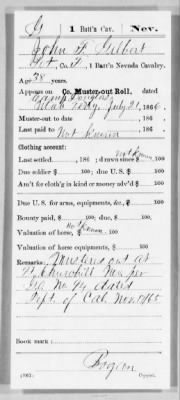 G | 1 Batt'n Cav. | Nev.
John F. Gilbert
Pvt, Co. F, 1 Batt'n Nevada Cavalry.
Age 28 years.
Appears on Co. Muster-out Roll, dated
Camp Douglas,
Utah Ty, July 21, 1866.
Muster-out to date , 186 .
Last paid to Not Known , 186 .
Clothing account:
Last settled , 186 ; drawn since $ Not Known 100
Due soldier $ 100; due U. S. $ 100
Am't for cloth'g in kind or money adv'd $ 100
Due U. S. for arms, equipments, &c., $ 100
Bounty paid $ 100; due $ 100
Valuation of horse, $ Not Known 100
Valuation of horse equipments, $ 100
Remarks: Mustered out at
Ft. Churchill Nev per
No. 94 dated
Dept. of Cal Nov 1865
Book mark:
(861) Copyist.